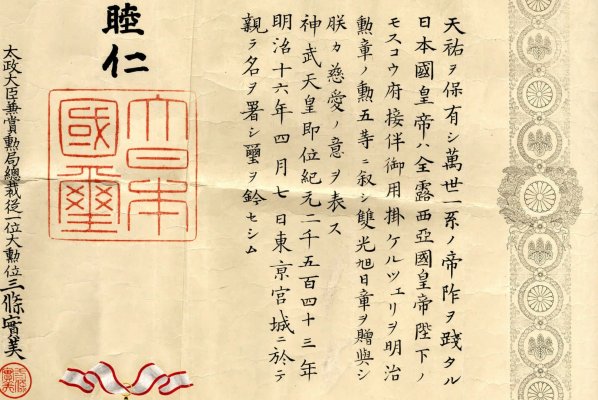 天祐ヲ保有シ萬世一系ノ帝阼ヲ踐タル
日本國皇帝ハ全露西亞國皇帝陛下ノ
モスコウ府接伴御用掛ケルツェリヲ明治
勲章ノ勲五等ニ叙シ雙光旭日章ヲ贈與シ
朕カ慈愛ノ意ヲ表ス
神武天皇即位紀元二千五百四十三年
明治十六年四月七日東京宮城ニ於テ
親ラ名ヲ署シ璽ヲ鈐セシム
睦仁
大日本
國璽
太政大臣兼賞勲局總裁從一位大勲位三條實美